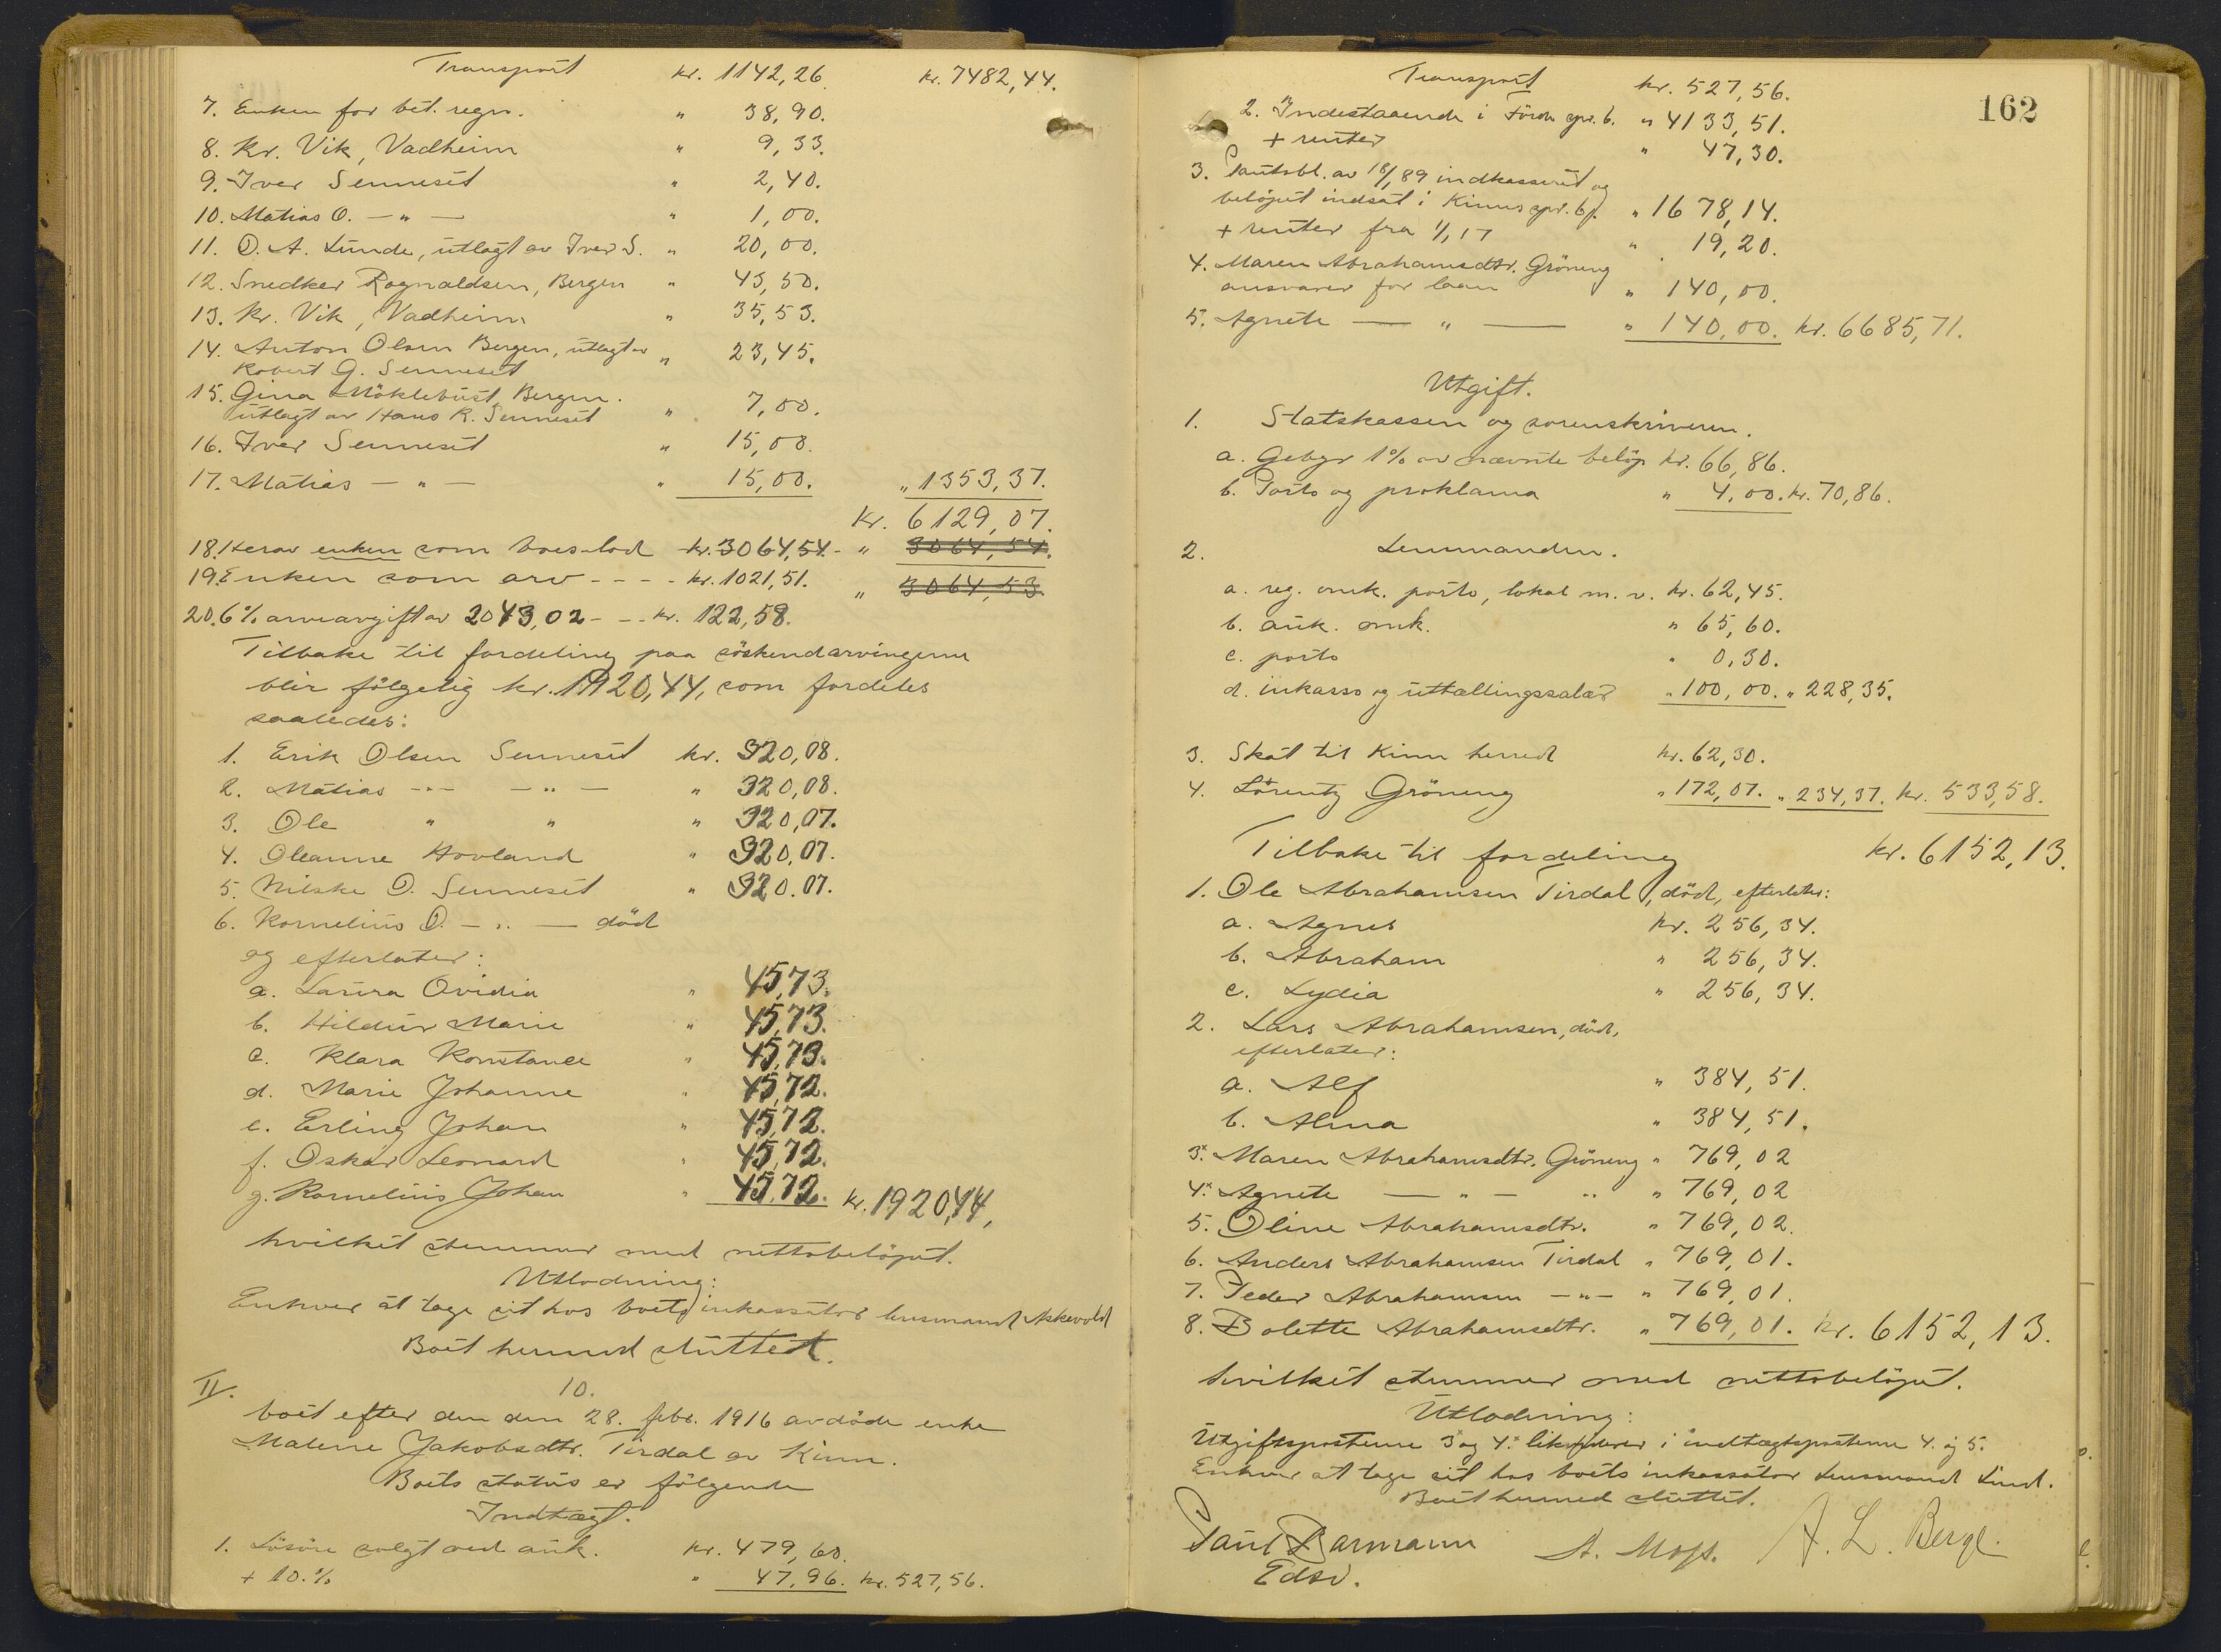 Transport kr. 1142,26 kr. 7482,44.
7. Enken for bet. regn. " 38,90.
8. Kr. Vik, Vadheim " 9,33.
9. Iver Senneset " 2,40.
10. Matias O. — " — " 1,00.
11. O. A. Lunde, utlagt av Iver S. " 20,00.
12. Snedker Ragnaldsen, Bergen " 43,50.
13. Kr. Vik, Vadheim " 35,53.
14. Anton Olsen Bergen, utlagt av
Robert G. Senneset " 23,45.
15. Gina Möklebust, Bergen.
utlagt av Hans R. Senneset " 7,00.
16. Iver Senneset " 15,00.
17. Matias — " — " 15,00. " 1353,37.
Kr. 6129,07.
18. Herav enken som boeslod kr. 3064,54. - " 3064,54.
19. Enken som arv - - - - kr. 1021,51. " 3064,53.
20. 6% arveavgift av 2043,02 - - - kr. 122,58.
Tilbake til fordeling paa söskendarvingerne
blir fölgelig kr. 1920,44, som fordeles
saaledes:
1. Erik Olsen Senneset kr. 320,08.
2. Matias - " - - " - " 320,08.
3. Ole " " " 320,07.
4. Oleanne Hovland " 320,07.
5. Nilske O. Senneset " 320.07.
6. Kornelius O. - " - — död
og efterlater:
a. Laura Ovidia " 45,73.
b. Hildur Marie " 45,73.
c. Klara Konstanse " 45,73.
d. Marie Johanne " 45,72.
e. Erling Johan " 45,72.
f. Oskar Leonard " 45,72.
g. Kornelius Johan " 45,72. kr. 1920,44,
hvilket stemmer med nettobelöpet.
Utlodning:
Enhver at tage sit hos boets inkassator lensmand Askevold
Boet hermed sluttet.
II. 10.
boet efter den den 28. febr. 1916 avdöde enke
Malene Jakobsdtr. Tirdal av Kinn.
Boets status er fölgende
Indtægt.
1. Lösöre solgt ved auk. kr. 479,60.
+ 10.% " 47.96. kr. 527,56.
162
Transport kr. 527,56.
2. Indestaaende i Förde spr. b. " 4133,51.
+ renter " 47,30.
3. Pantobl. av 18/1 89 indkasseret og
belöpet indsat i Kinns spr. b/. " 1678,14.
+ renter fra 1/1 17 " 19,20.
4. Maren Abrahamsdtr. Gröneng
ansvarer for laan " 140,00.
5. Agnete — " — " 140,00. kr. 6685,71.
Utgift.
1. Statskassen og sorenskriveren.
a. Gebyr 1% av nævnte belöp kr. 66,86.
b. Porto og proklama " 4,00. kr. 70,86.
2. Lensmanden.
a. reg. omk. porto, lokal m. v. kr. 62,45.
b. auk. omk. " 65,60.
c. porto " 0,30.
d. inkasso og uttællingssalær " 100,00. " 228,35.
3. Skat til Kinn herred kr. 62,30.
4. Lörentz Gröneng " 172,07. " 234,37. kr. 533,58.
Tilbake til fordeling kr. 6152,13.
1. Ole Abrahamsen Tirdal, död, efterlater:
a. Agnes kr. 256,34.
b. Abraham " 256,34.
c. Lydia " 256,34.
2. Lars Abrahamsen, död,
efterlater:
a. Alf " 384,51.
b. Alma " 384,51.
3.x Maren Abrahamsdtr. Gröneng " 769,02
4.x Agnete — " — " " 769,02
5. Oline Abrahamsdtr. " 769,02.
6. Anders Abrahamsen Tirdal " 769,01.
7. Peder Abrahamsen — " — " 769,01.
8. Bolette Abrahamsdtr. " 769,01. kr. 6152,13.
hvilket stemmer med nettobelöpet.
Utlodning:
Utgiftsposterne 3x og 4.x likviderer i indtægtsposterne 4. og 5.
Enhver at tage sit hos boets inkassator Lensmand Lund.
Boet hermed sluttet.
Paul Barmann A. Moss. A. L. Berge.
Edsv.